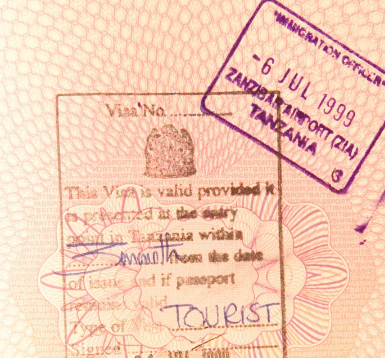 "IMMIGRATION OFFICER"
-6 JUL 1999
ZANZIBAR AIRPORT (ZIA)
TANZANIA
Visa No..............
This Visa is valid provided it
is presented at the entry
point in Tanzania within
from the date
of issue and if passport
remains valid
Type of Visa TOURIST
Signed
JUL 1999